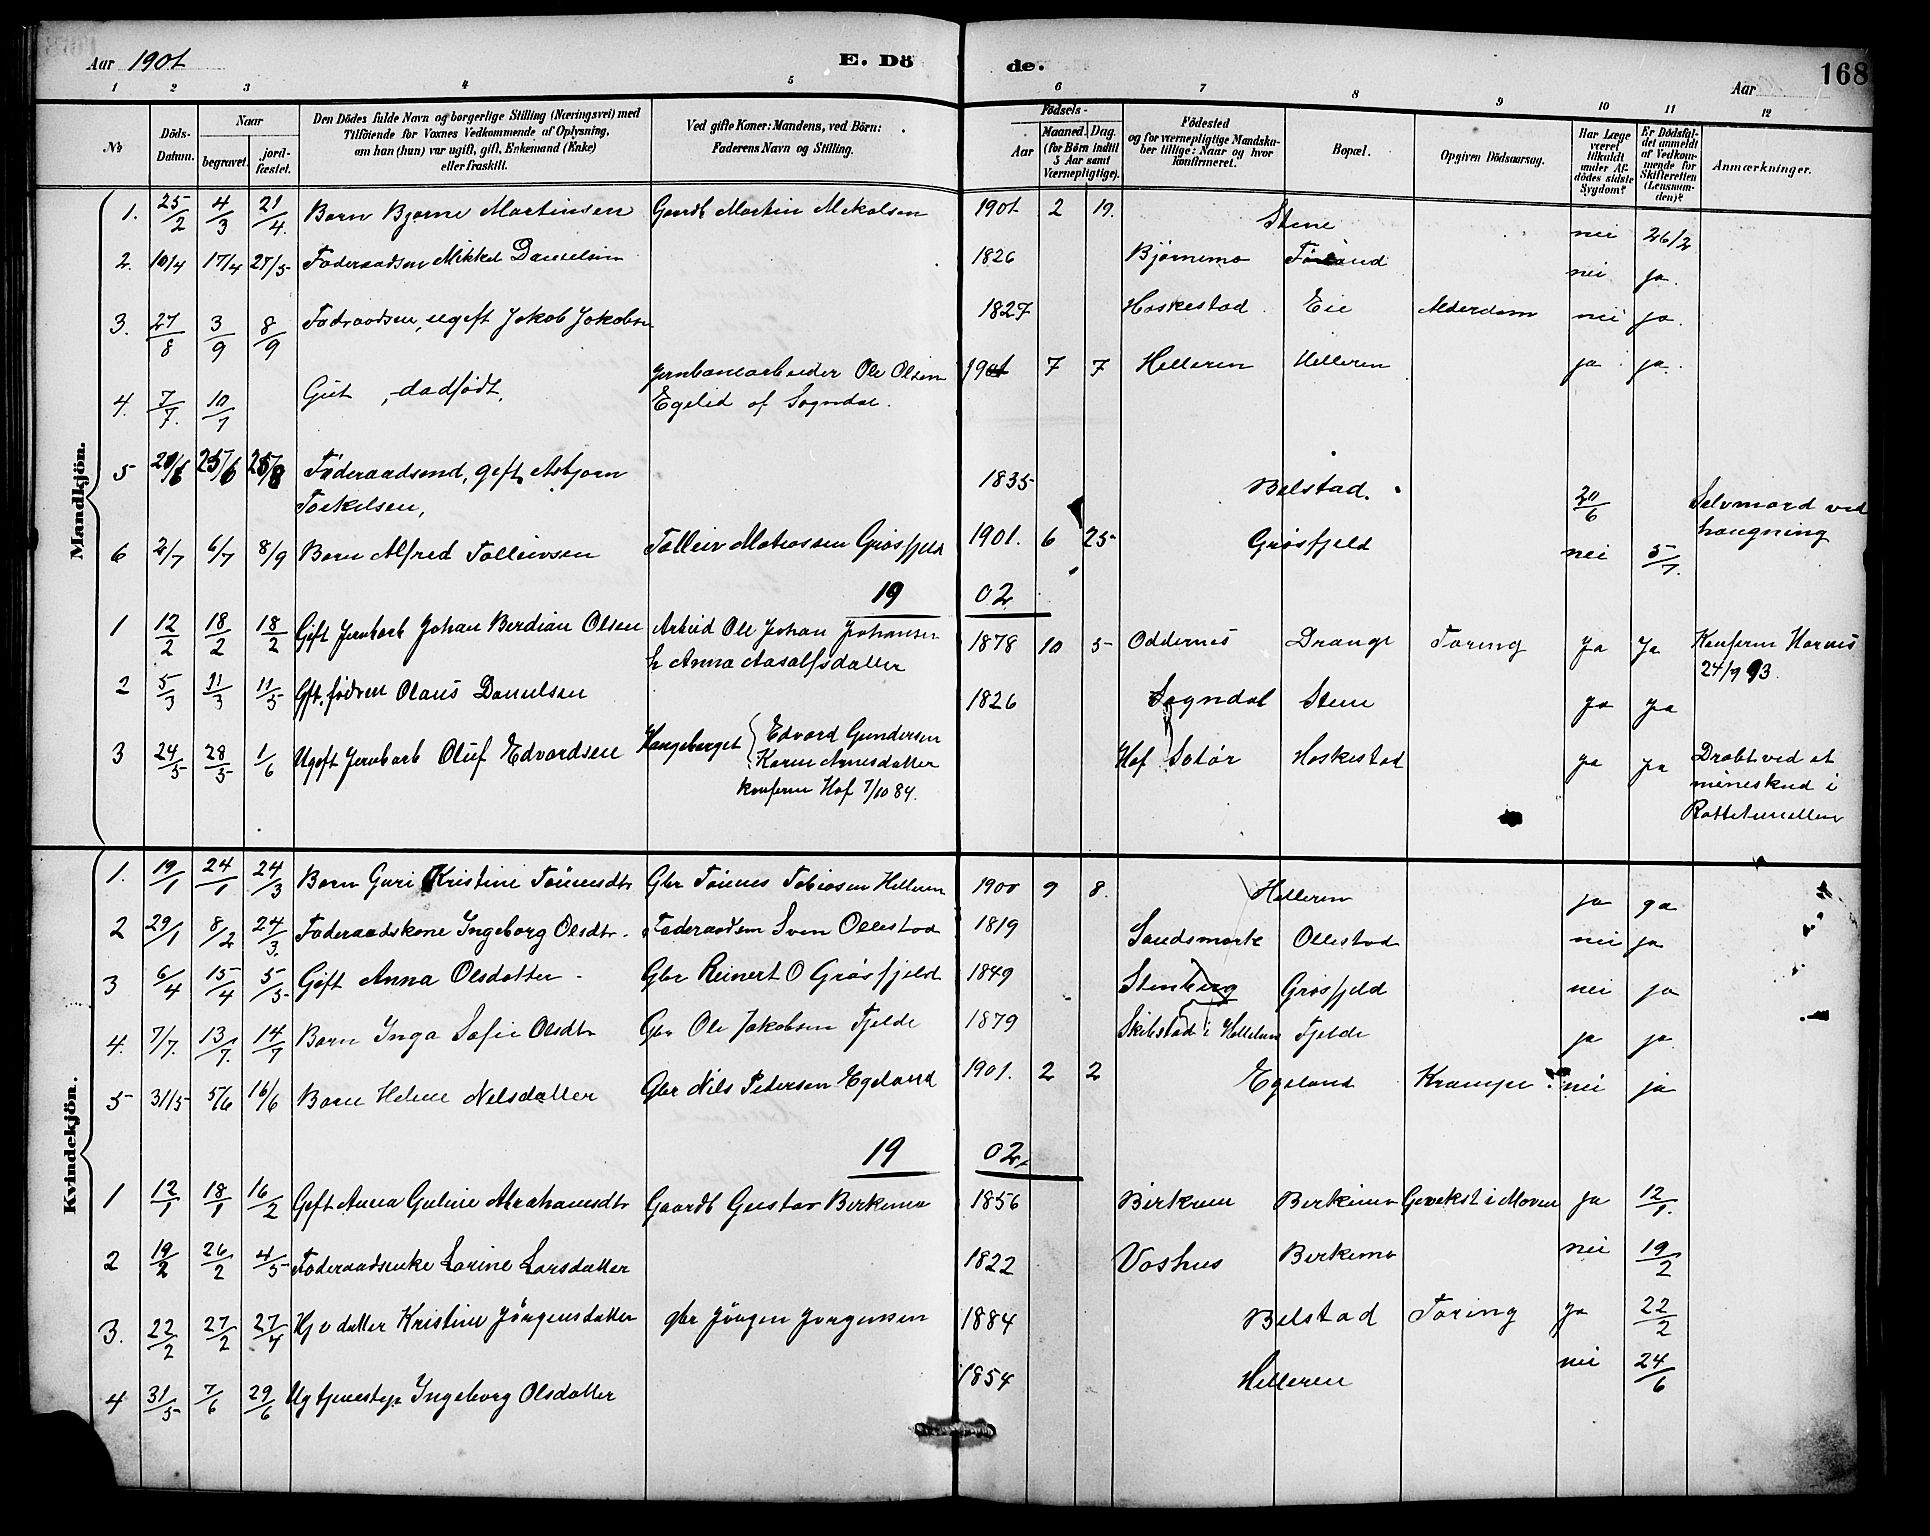 Aar 1901 E. Dö de. Aar 168
1 2 3 4 5 6 7 8 9 10 11 12
No
Döds-Datum.
Naar
begravet.
jord-fæstet.
Den Dödes fulde Navn og borgerlige Stilling (Næringsvei) med
Tilföiende for Voxnes Vedkommende af Oplysning,
om han (hun) var ugift, gift, Enkemand (Enke)
eller fraskilt.
Ved gifte Koner: Mandens, ved Börn:
Faderens Navn og Stilling.
Födsels-
Aar
Maaned. Dag.
(for Börn indtil
5 Aar samt
Værnepligtige).
Födested
og for værnepligtige Mandska-
ber tillige: Naar og hvor
konfirmeret.
Bopæl.
Opgiven Dödsaarsag.
Har Læge
været
tilkaldt
under Af-
dödes sidste
Sygdom?
Er Dödsfal-
det anmeldt
af Vedkom-
mende for
Skifteretten
(Lensman-
den)?
Anmærkninger.
Mandkjön.
1. 25/2 4/3 21/4. Barn Bjarne Martinsen Gaardb Martin Mikalsen 1901 2 19. Stene nei 26/2
2. 10/4 17/4 27/5 Føderaadsm Mikkel Danielsen 1826 Bjørnemo nei ja.
3. 27/8 3/9 8/9 Føderaadsm, ugift Jakob Jakobsen 1827 Haskestad Eie Alderdom nei ja.
4. 7/7. 10/7 Gut, dødfødt, Jernbanearbeider Ole Olsen 1901 7 7 Helleren Helleren ja ja.
Egelid af Sogndal.
5 20/6 25/6 25/8 Føderaadsmd, gift Asbjørn 1835 Belstad. 20/6 Selvmord ved
Torkelsen, hængning
6 2/7 6/7 8/9 Barn Alfred Talleivsen Talleiv Mathiassen Grøsfjeld 1901. 6 25 Grøsfjeld nei 5/7.
19 02
1 12/2 18/2 18/2 Gift Jernbarb Johan Berdian Olsen Arbeid Ole Johan Johansen 1878 10 5 Oddernes Drange Tæring Ja Ja Konferm Hornes
h Anna Aasalfsdatter 24/9 93.
2 5/3 11/3 11/5 Gft. födrm Olaus Danielsen 1826 Sogndal Stene ja ja
3 24/5 28/5 1/6 Ugift Jernbarb Oluf Edvardsen Haugeberget Edvard Gundersen Hof Solør Haskestad ja ja Dræbt ved et
Karen Arnesdatter mineskud i
konferm Hof 7/10 84. Rottetunellen
Kvindekjön.
1. 19/1 24/1 24/3 Barn Guri Kristine Tönnesdtr Gbr Tönnes Tobiasen Helleren 1900 9 8. Helleren ja ja
2 29/1 8/2 24/3. Føderaadskone Ingeborg Olsdtr. Føderaadsm Sven Ollestad 1819 Sandsmark Ollestad nei ja
3 6/4 15/4 5/5 Gift Anna Olsdatter Gbr Reinert O Grøsfjeld 1849 Stenberg Grøsfjeld nei ja
4. 7/7. 13/7. 14/7 Barn Inga Sofie Olsdtr Gbr Ole Jakobsen Fjelde 1879 Skibstad i Helleland Fjelde ja ja
5 31/5 5/6 16/6 Barn Helene Nilsdatter Gbr Nils Petersen Egeland 1901. 2 2 Egeland Krampe nei ja
19 02.
1 12/1 18/1 16/2 Gift Anna Guline Abrahamsdtr Gaardb Gustav Birkemo 1856 Birkrem Berkimo Gevekst i Maven ja 12/1.
2 19/2 26/2 4/5 Føderaadsenke Lorine Larsdatter 1822 Voshus Berkemo nei 19/2
3. 22/2 27/2 27/4 Hj v datter Kristine Jörgensdatter gbr Jörgen Jörgensen 1884 Belstad Tæring ja 22/2
4 31/5 7/6 29/6 Ug tjenestep. Ingeborg Olsdatter 1854 Helleren nei 24/6